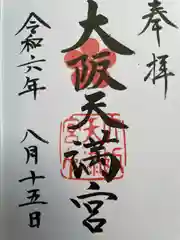 奉拝
大阪天満宮
令和六年
八月十五日